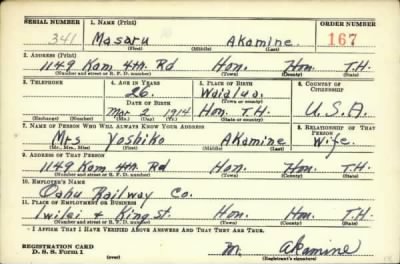 SERIAL NUMBER 1. NAME (Print) ORDER NUMBER
341 Masaru Akamine. 167
(First) (Middle) (Last)
2. ADDRESS (Print)
1149 Kam. 4th. Rd Hon. Hon. T.H.
(Number and street or R. F. D. number) (Town) (County) (State)
3. TELEPHONE 4. AGE IN YEARS 5. PLACE OF BIRTH 6. COUNTRY OF CITIZENSHIP
26. Waialua.
DATE OF BIRTH (Town or county)
Mar. 2 1914 Hon. T.H. U.S.A.
(Exchange) (Number) (Mo.) (Day) (Yr.) (State or country)
7. NAME OF PERSON WHO WILL ALWAYS KNOW YOUR ADDRESS 8. RELATIONSHIP OF THAT PERSON
Mrs Yoshiko Akamine Wife.
(Mr., Mrs., Miss) (First) (Middle) (Last)
9. ADDRESS OF THAT PERSON
1149 Kam 4th. Rd Hon. Hon. T.H.
(Number and street or R. F. D. number) (Town) (County) (State)
10. EMPLOYER'S NAME
Oahu Railway Co.
11. PLACE OF EMPLOYMENT OR BUSINESS
Iwilei & King st. Hon. Hon. T.H.
(Number and street or R. F. D. number) (Town) (County) (State)
I AFFIRM THAT I HAVE VERIFIED ABOVE ANSWERS AND THAT THEY ARE TRUE.
REGISTRATION CARD
D. S. S. Form 1 M. Akamine
(over) (Registrant's signature)